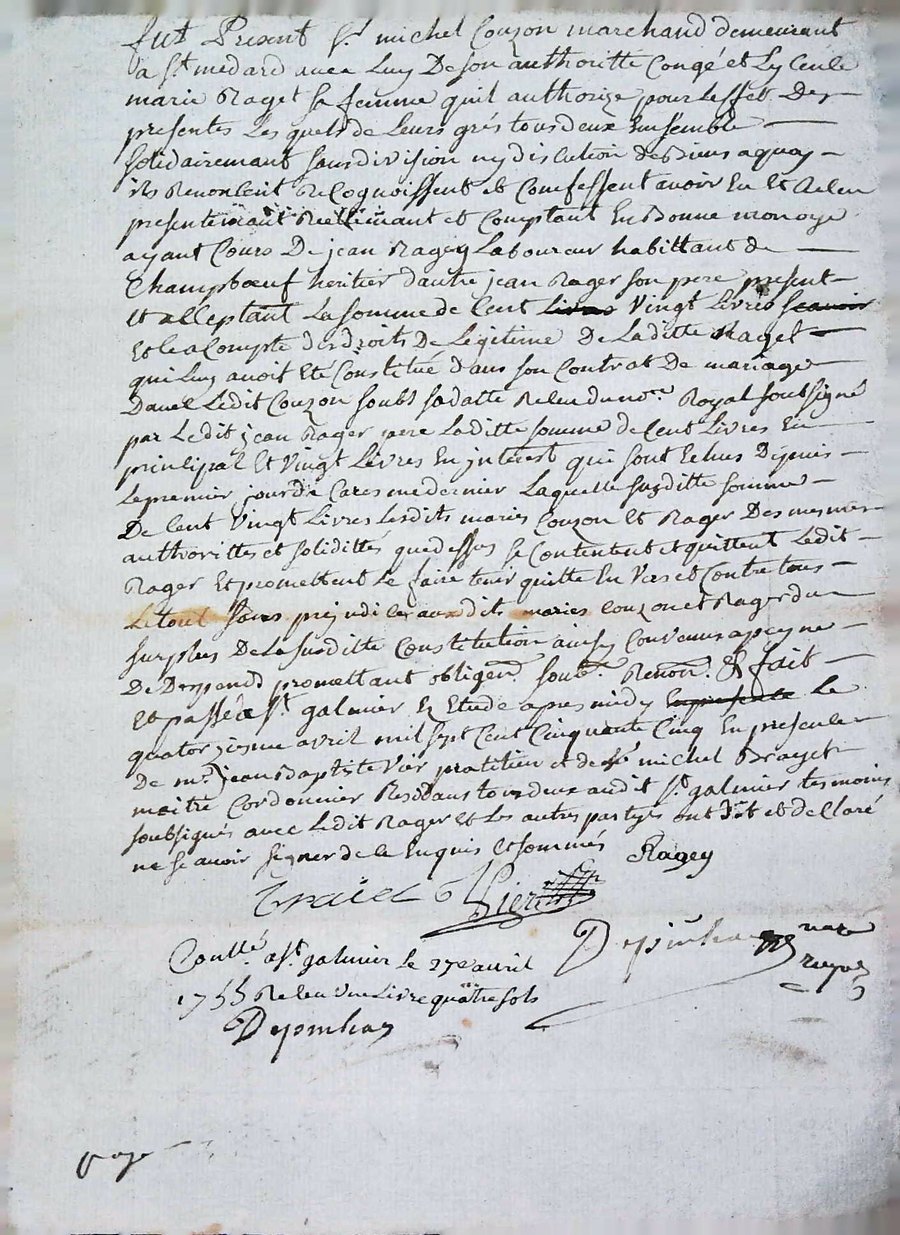 fut Present Sr. michel Couzon marchand demeurant
a St medard avec Luy De son authoritté Congé et Lycence
marie Raget sa femme quil authorize pour Leffet Des
presentes Les quels de Leurs grés tous deux Ensemble
solidairemant sans division ny discution de Biens a quoy
ils Renoncent Recognoissent et Confessent avoir Eu et Receu
presentemant Reellemant et Comptant En Bonne monoye
ayant Cours De jean Ragey Laboureur habittant de
Champbœuf heritier dautre jean Rager son pere present
et acceptant La somme de Cent Livres Vingt Livres Scavoir
Et ce a Compte des droits De Legitime De Laditte Raget
qui Luy avoit Eté Constitué dans son Contrat De mariage
Davec Ledit Couzon soubs sa datte Receu du nore. Royal soubsigné
par Ledit jean Rager pere Laditte somme de Cent Livres En
principal Et Vingt Livres En jnterest qui sont Echus Depuis
Le premier jour de Caresme dernier Laquelle susditte somme
De Cent Vingt Livres Lesdits mariés Couzon Et Rager Des mesmes
authorittés et solidittés que dessus se Contentent et quittent Ledit
Rager Et promettent Le faire tenir quitte En Vers et Contre tous
Le tout sans prejudicier auxdits mariés Couzon et Rager du
surplus De La susditte Constitution ainsy Convenus a peyne
De Despends promettant obligent. soub. Renon. & fait
Et passé a St. galmier Ez Etude apres midy En presence Le
quatorzieme avril mil sept Cent Cinquante Cinq En presence
De me. jean Baptiste Vier pratitien et de Sr michel Brayet
maitre Cordonnier Residans tous deux audit St. galmier tesmoins
soubsignés avec Ledit Rager Et Les autres partyes ont Dit et declaré
ne scavoir signer de ce Enquis Et sommés
Ragey
Braiet
Vier
Depinhac nore
royal
Conllé. a St. galmier Le 27e avril
1755 Receu une Livre quatre sols
Depinhac